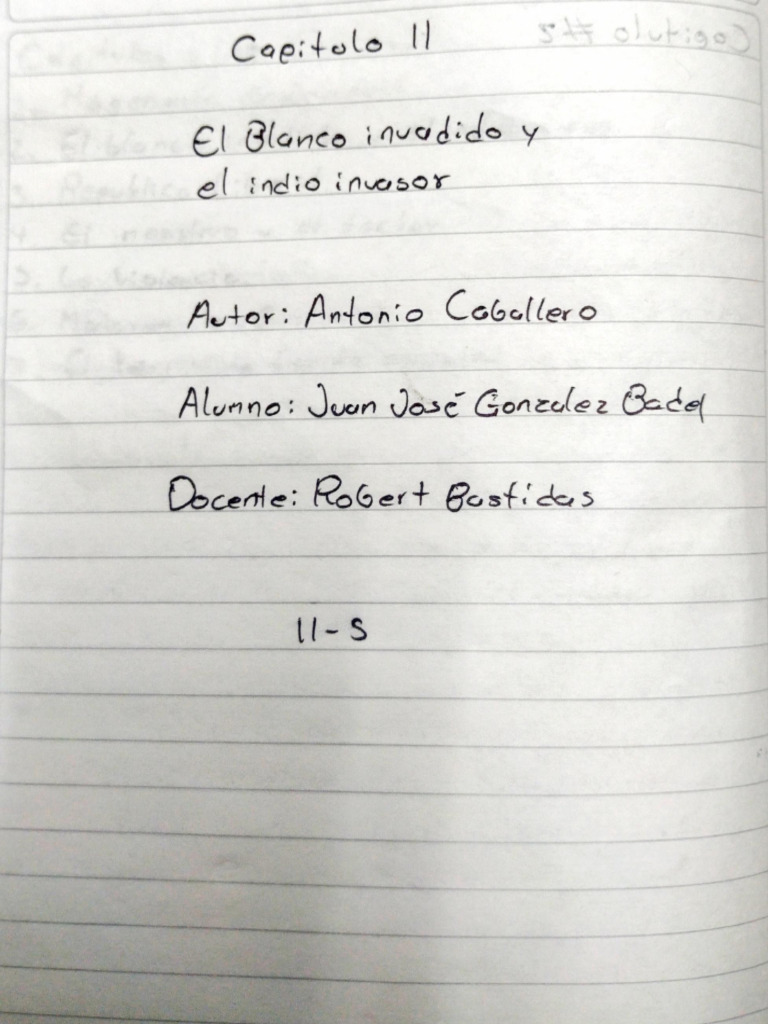 Capitulo II
El Blanco invadido y
el indio invasor
Autor: Antonio Caballero
Alumno: Juan José Gonzalez Badel
Docente: Robert Bastidas
11-5